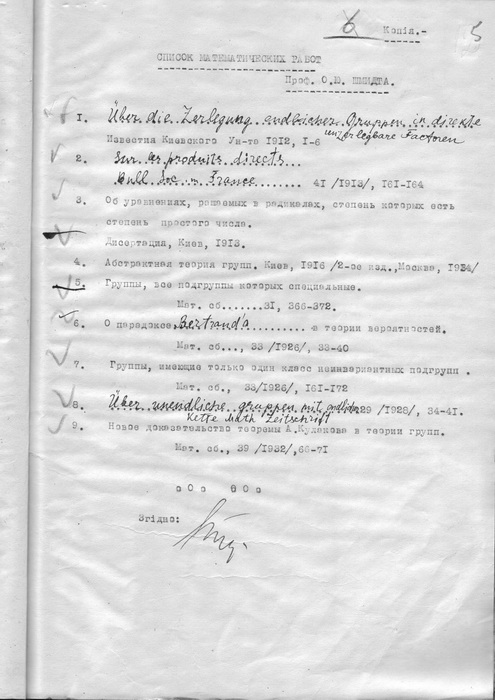 6 Копія.- 5
СПИСОК МАТЕМАТИЧЕСКИХ РАБОТ
Проф. О.Ю. ШМИДТА.
1. Über die Zerlegung endlicher Gruppen in direkte
unzerlegbare Factoren
Известия Киевского Ун-та 1912, 1-6
2. Sur les produits directs...
Bull Soc. m. France........ 41 /1913/, 161-164
3. Об уравнениях, рошаемых в радикалах, степень которых есть
степень простого числа.
Дисертация, Киев, 1913.
4. Абстрактная теория групп. Киев, 1916 /2-ое изд., Москва, 1934/
5. Группы, все подгруппы которых специальные.
Мат. сб.......31, 366-372.
6. О парадоксе Bertrand'a в теории вероятностей.
Мат. сб..., 33 /1926/, 33-40
7. Группы, имеющие только один класс неинвариантных подгрупп .
Мат. сб., 33/1926/, 161-172
8. Über unendliche gruppen mit endlicher 29 /1928/, 34-41.
Kette Math Zeitschrift
9. Новое доказательство теоремы А.Кулакова в теории групп.
Мат. сб., 39 /1932/, 66-71
o0o 00o
Згідно: